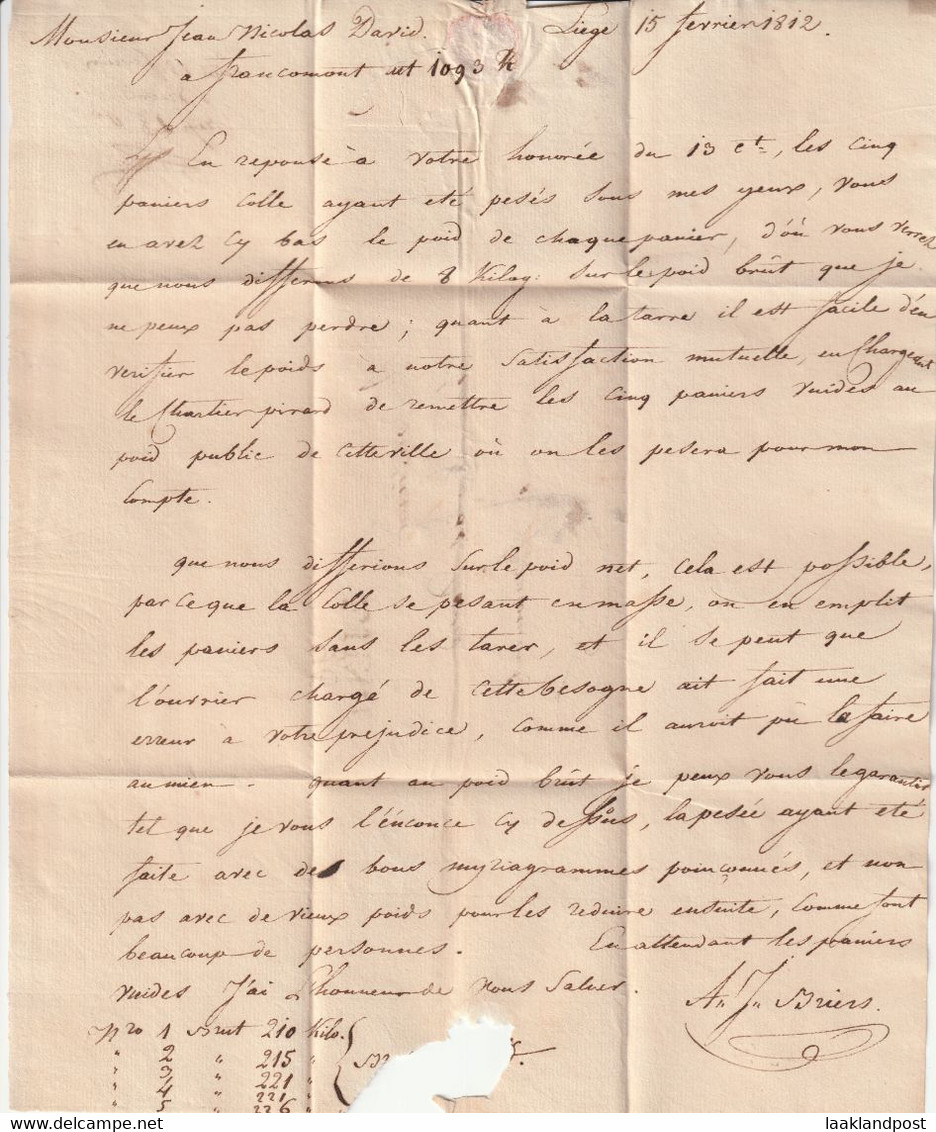 Monsieur Jean Nicolas David. Liege 15 fevrier 1812.
a francomont ut 1093 K
En reponse à votre honorée du 13 ct., les Cinq
paniers Colle ayant eté pesés sous mes yeux, vous
en avez Cy bas le poid de chaque panier, d'où vous verrez
que nous differons de 8 Kilog: sur le poid brût que je
ne peux pas perdre; quant à la tarre il est facile d'en
verifier le poids a notre satisfaction mutuelle, en Chargeant
le Chartier pirard de remettre les Cinq paniers vuides au
poid public de Cette ville où on les pesera pour mon
Compte.
que nous differions sur le poid net, Cela est possible,
par Ce que la Colle se pesant en masse, on en emplit
les paniers sans les tarer, et il se peut que
l'ouvrier chargé de Cette besogne ait fait une
erreur à votre prejudice, comme il auroit pû la faire
au mien. quant au poid brût je peux vous le garantir
tel que je vous l'énconce Cy dessûs, la pesée ayant eté
faite avec de bons myriagrammes poinçonnés, et non
pas avec de vieux poids pour les reduire ensuite, Comme font
beaucoup de personnes. En attendant les paniers
vuides J'ai L'honneur de vous Saluer.
An Jn Briers.
Nro 1 Brut 210 Kilo.
" 2 " 215 "
" 3 " 221 "
" 4 " 221 "
" 5 " 226 "
https://www.delcampe.net
laaklandpost